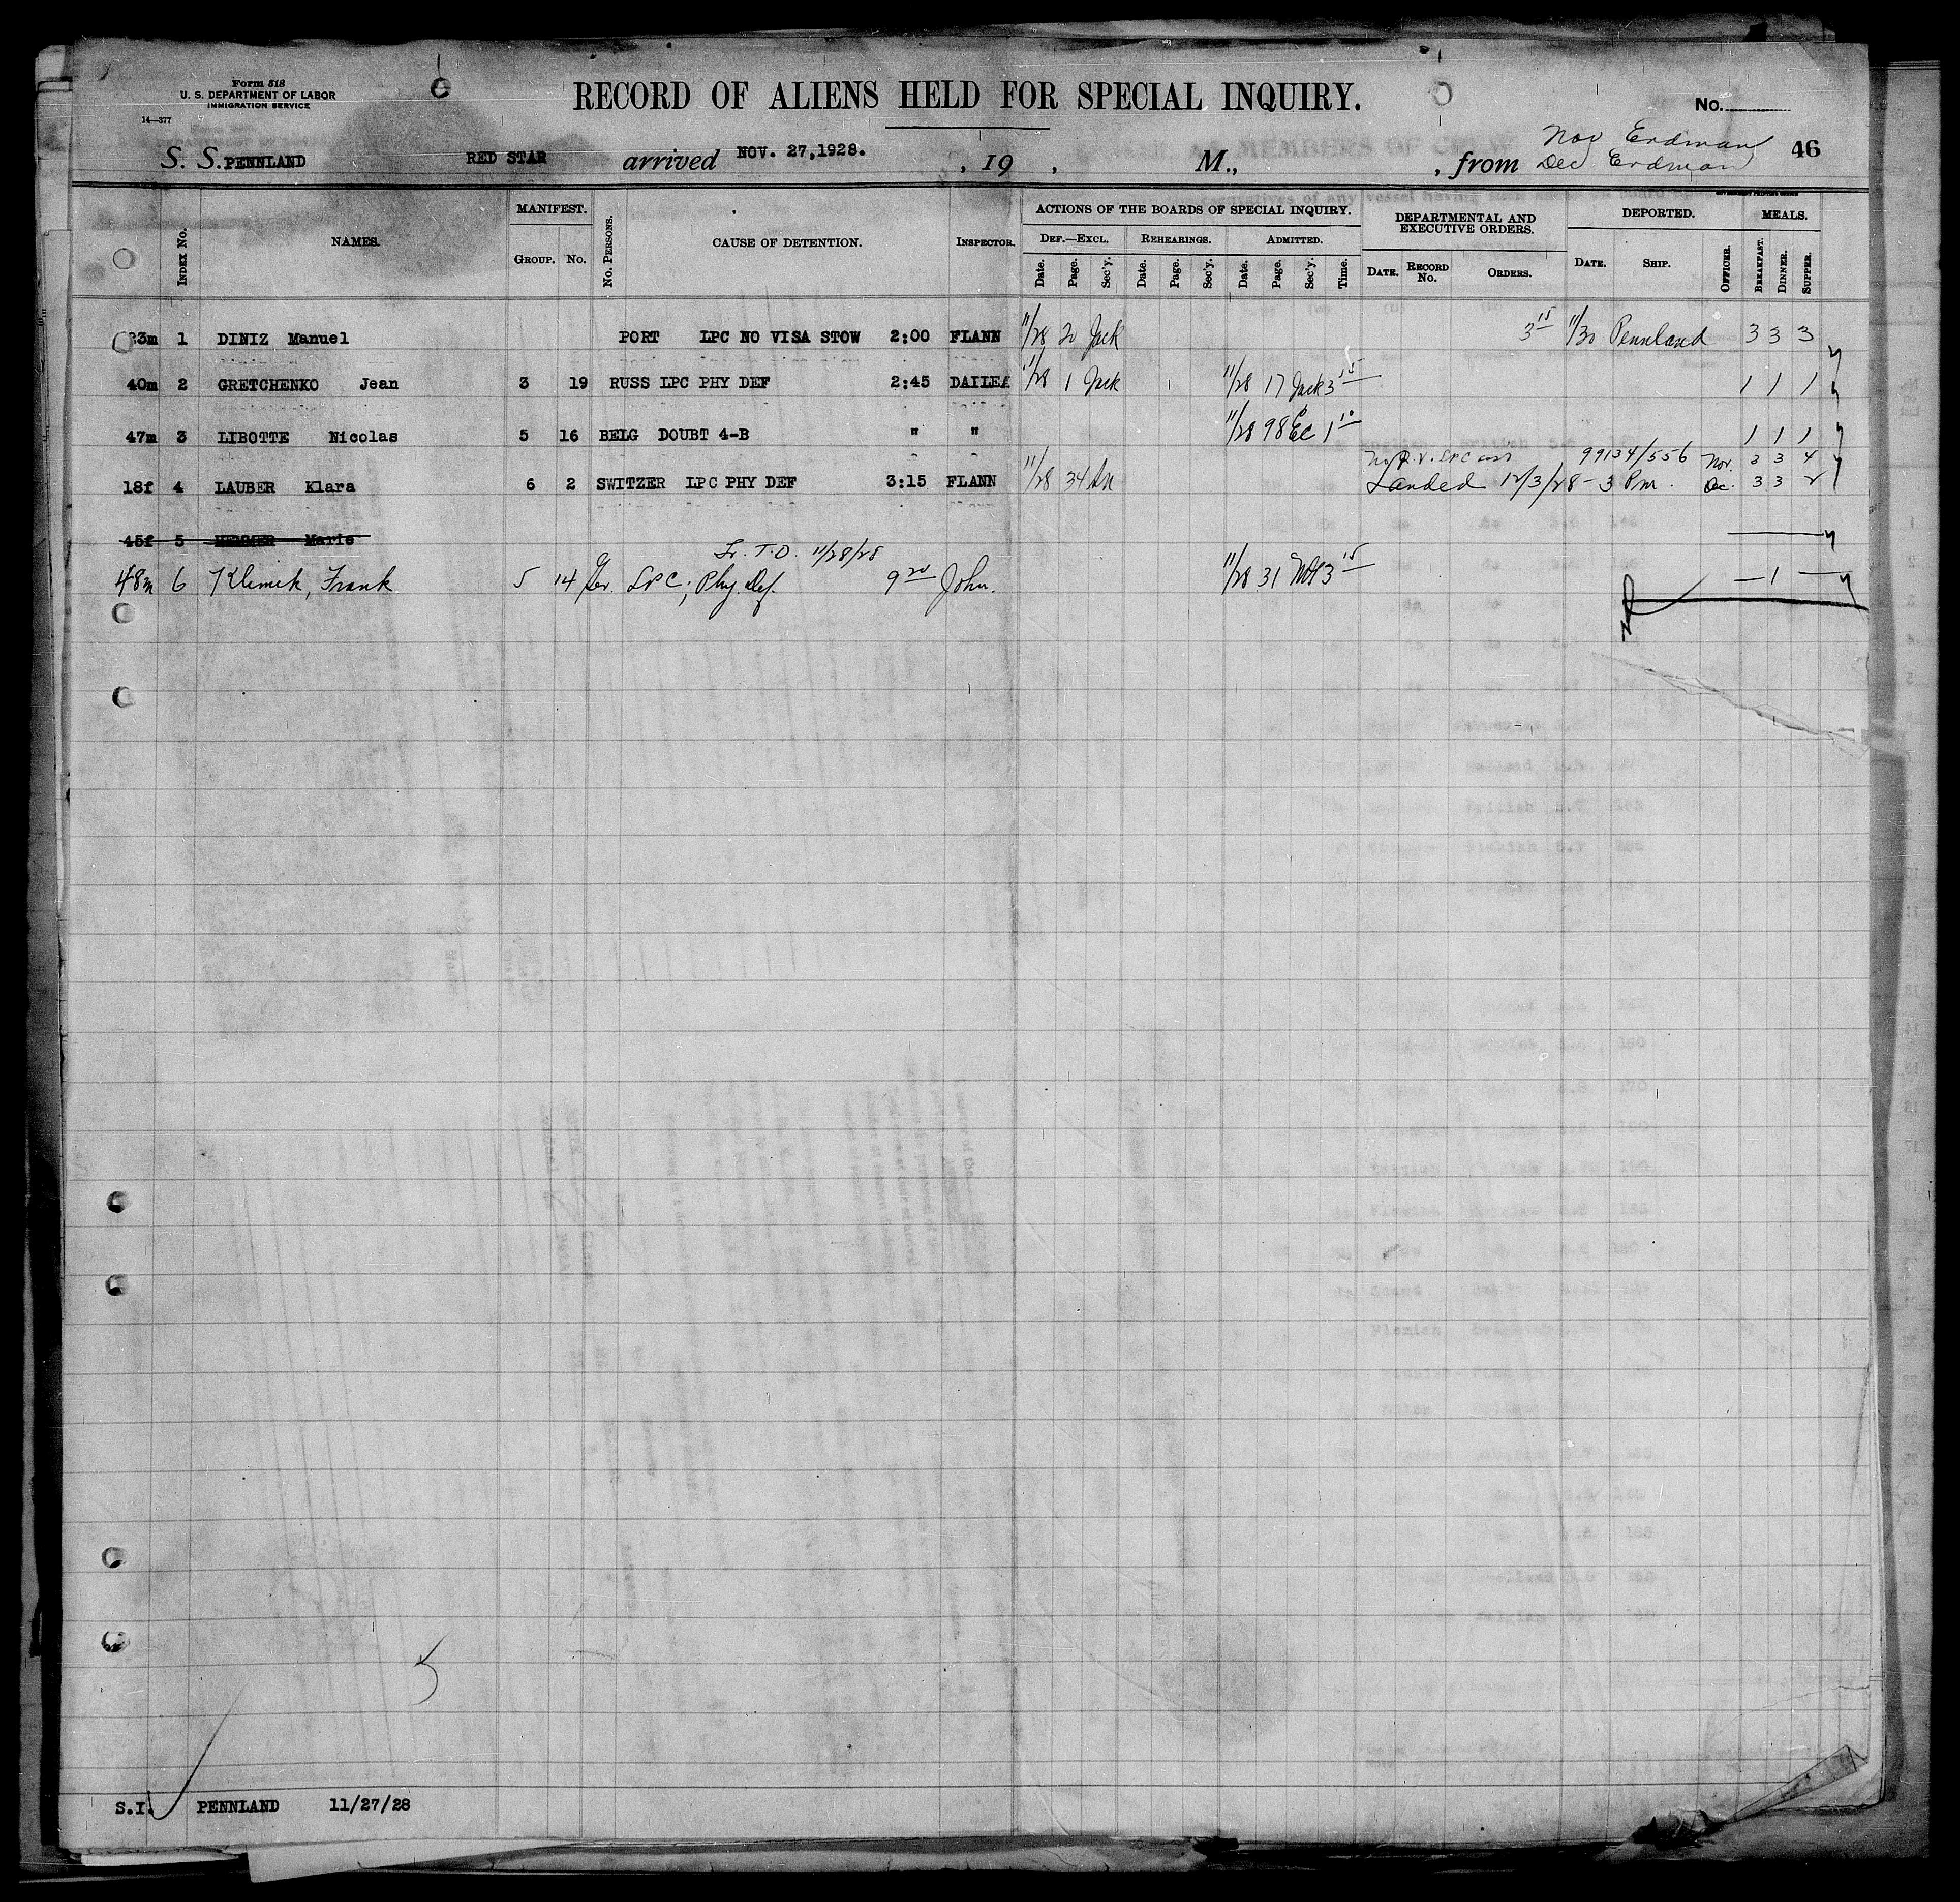 Form 518
U. S. DEPARTMENT OF LABOR
IMMIGRATION SERVICE
14—377
RECORD OF ALIENS HELD FOR SPECIAL INQUIRY.
No.
S. S. PENNLAND RED STAR arrived NOV. 27,1928. , 19 , M., , from Nov Erdman
Dec Erdman
46
GOVERNMENT PRINTING OFFICE
Index No. NAMES. MANIFEST. No. Persons. CAUSE OF DETENTION. Inspector. ACTIONS OF THE BOARDS OF SPECIAL INQUIRY. DEPARTMENTAL AND EXECUTIVE ORDERS. DEPORTED. MEALS.
Group. No. Def.—Excl. Rehearings. Admitted.
Date. Page. Sec'y. Date. Page. Sec'y. Date. Page. Sec'y. Time. Date. Record No. Orders. Date. Ship. Officer. Breakfast. Dinner. Supper.
23m 1 DINIZ Manuel PORT LPC NO VISA STOW 2:00 FLANN 11/28 20 Jack 3 15 11/30 Pennland 3 3 3
40m 2 GRETCHENKO Jean 3 19 RUSS LPC PHY DEF 2:45 DAILEA 11/28 1 Jack 11/28 17 Jack 3 15 1 1 1
47m 3 LIBOTTE Nicolas 5 16 BELG DOUBT 4-B " " 11/28 98 EC 1 10 1 1 1
99134/556 Nov. 3 3 4
18f 4 LAUBER Klara 6 2 SWITZER LPC PHY DEF 3:15 FLANN 11/28 34 Landed 12/3/28 - 3 Pm. Dec. 3 3 2
45f 5 Marie
11/28/28
48m 6 Klimek, Frank 5 14 Ger. LPC; Phy. Def. 9 20 John. 11/28 31 3 15 — 1 —
S.I. PENNLAND 11/27/28